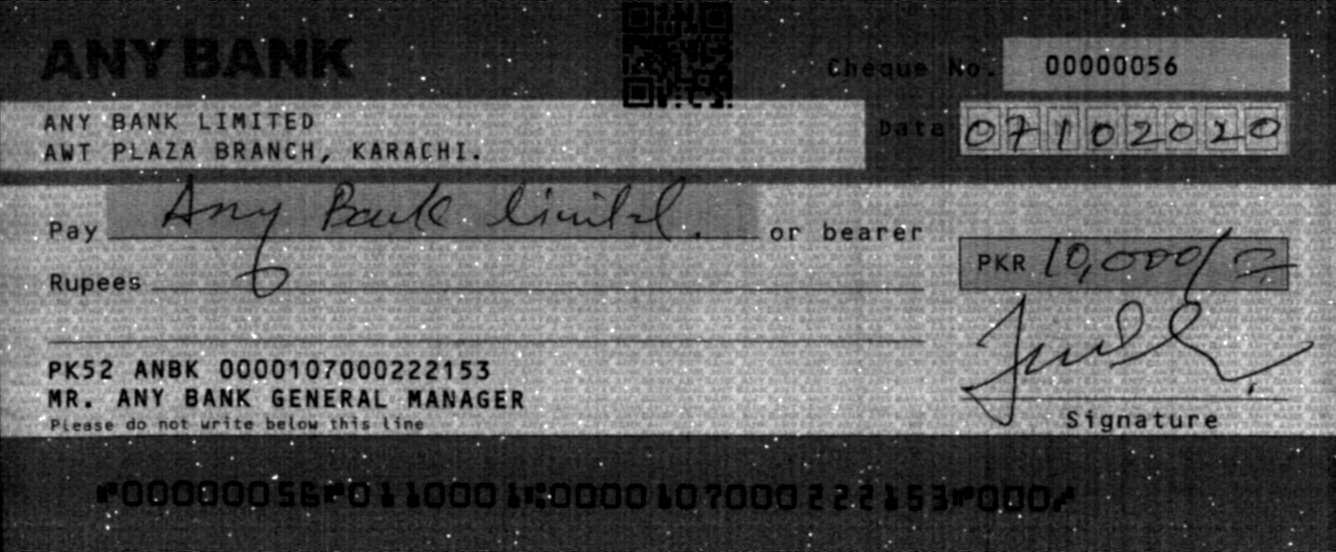 ANY BANK
Cheque No. 00000056
ANY BANK LIMITED
AWT PLAZA BRANCH, KARACHI.
Data 07102020
Pay Any Bank Limited. or bearer
Rupees
PKR 10,000/=
PK52 ANBK 0000107000222153
MR. ANY BANK GENERAL MANAGER
Please do not write below this line
Signature
⑈00000056⑈0110001⑆0000107000222153⑈000⑇